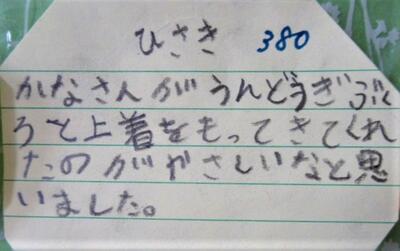 ひさき 380
かなさんがうんどうぎぶく
ろと上着をもってきてくれ
たのがやさしいなと思
いました。